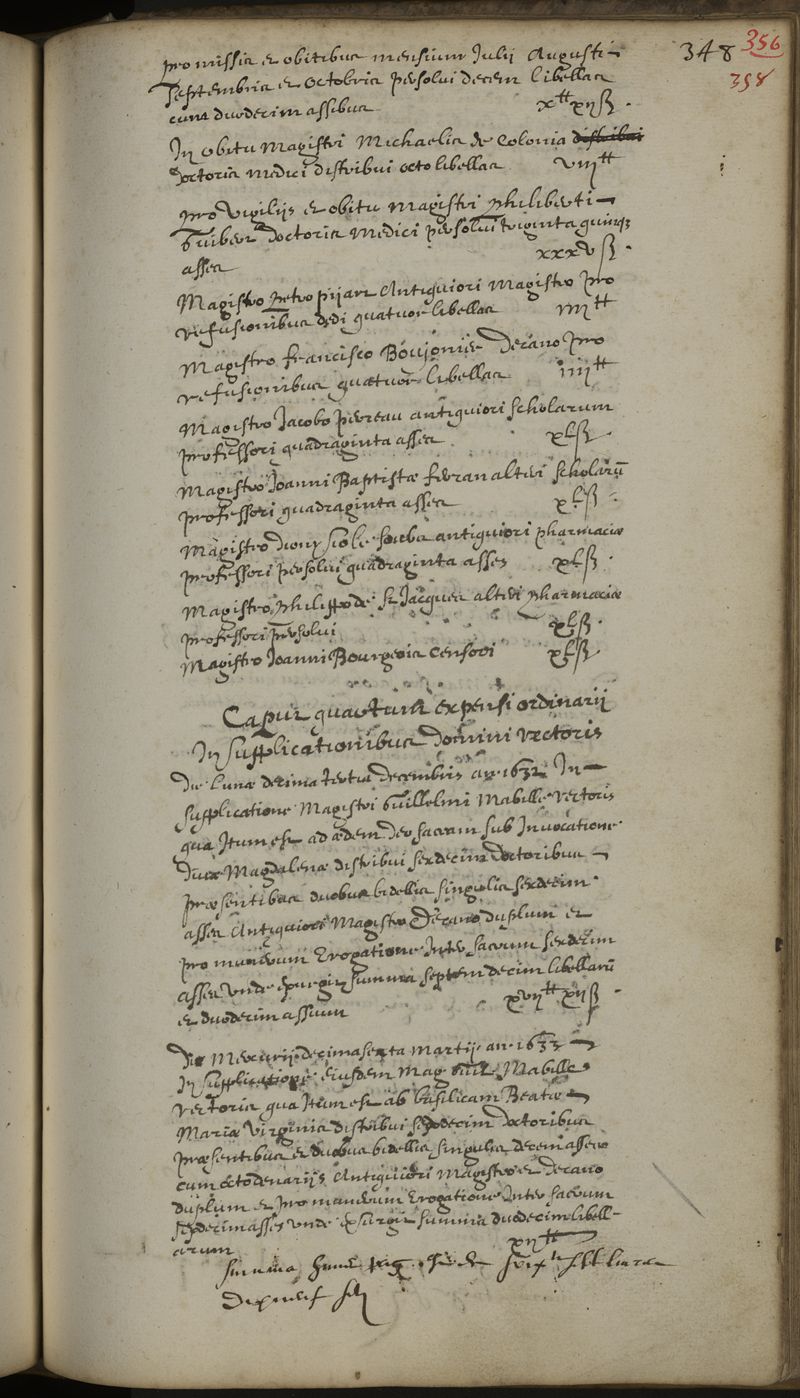 348 356
358
pro missis et obitibus mensium Julij Augusti
Septembris et Octobris persolui decem libellas
cum duodecim assibus x₶ xijß.
In obitu Magistri Michaelis de Colonia distribui
doctoris medici distribui octo libellas viij₶
pro Vigilijs et obitu Magistri philiberti
Guiber doctoris medici persolui triginta quinq
asses xxxvß.
Magistro petro pijart Antiquiori Magistro pro
refusionibus dedi quatuor libellas iiij₶
Magistro francisco Boujonier Decano pro
refusionibus quatuor libellas iiij₶
Magistro Jacobo perreau antiquiori scholarum
professori quadraginta asses xlß.
Magistro Joanni Baptistæ ferran alteri scholarū
professori quadraginta asses xlß
Magistro antiquiori pharmaciæ
professori persolui quadraginta asses xlß.
Magistro philippo de St Jacques alteri pharmaciæ
professori persolui xlß.
Magistro Joanni Bourgeois Censori xlß.
Caput quartum expensi ordinarij
In supplicationibus domini rectoris
Die Lunæ decima tertia decembris an 1632 In
supplicatione Magistri Guillelmi Mabille rectoris
qua Itum est ad ædem deo sacram sub Invocatione
Divæ Magdalenæ distribui sexdecim doctoribus
præsentibus duobus bidellis singulis sexdecim
asses Antiquiori Magistro Decano duplum et
pro munerum Erogatione Inter sacrum sexdecim
asses unde exurgit summa septemdecim libellarū
et duodecim assium xvij₶ xijß
Die Mercurij decima sexta martij an. 1633
In supplicatione eiusdem Mag. Guil. Mabille
rectoris qua Itum est ab basilicam Beatæ
Mariæ Virginis distribui sexdecim doctoribus
præsentibus et duobus bidellis singulis decem asses
cum octo denarijs Antiquiori Magistro et decano
duplum et pro munerum Erogatione Inter sacrum
sexdecim asses unde exsurgit summa duodecim libell-
arum xij₶
summa